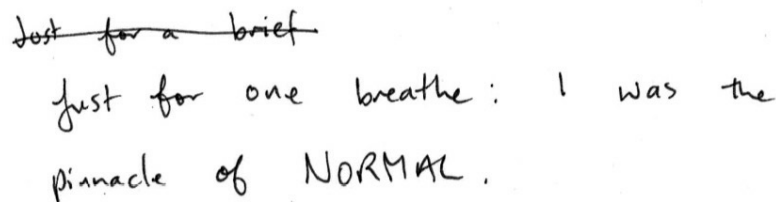 Just for a brief
Just for one breathe: I was the
pinnacle of NORMAL.